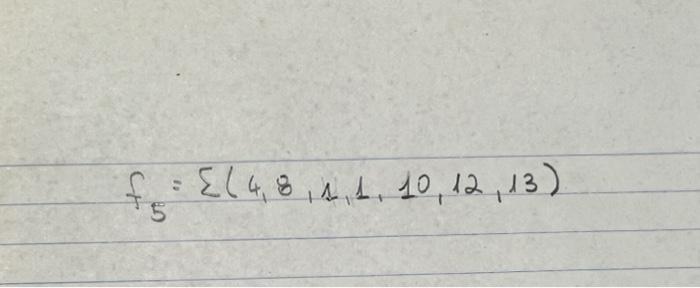 f₅ = Σ(4, 8, 1, 1, 10, 12, 13)